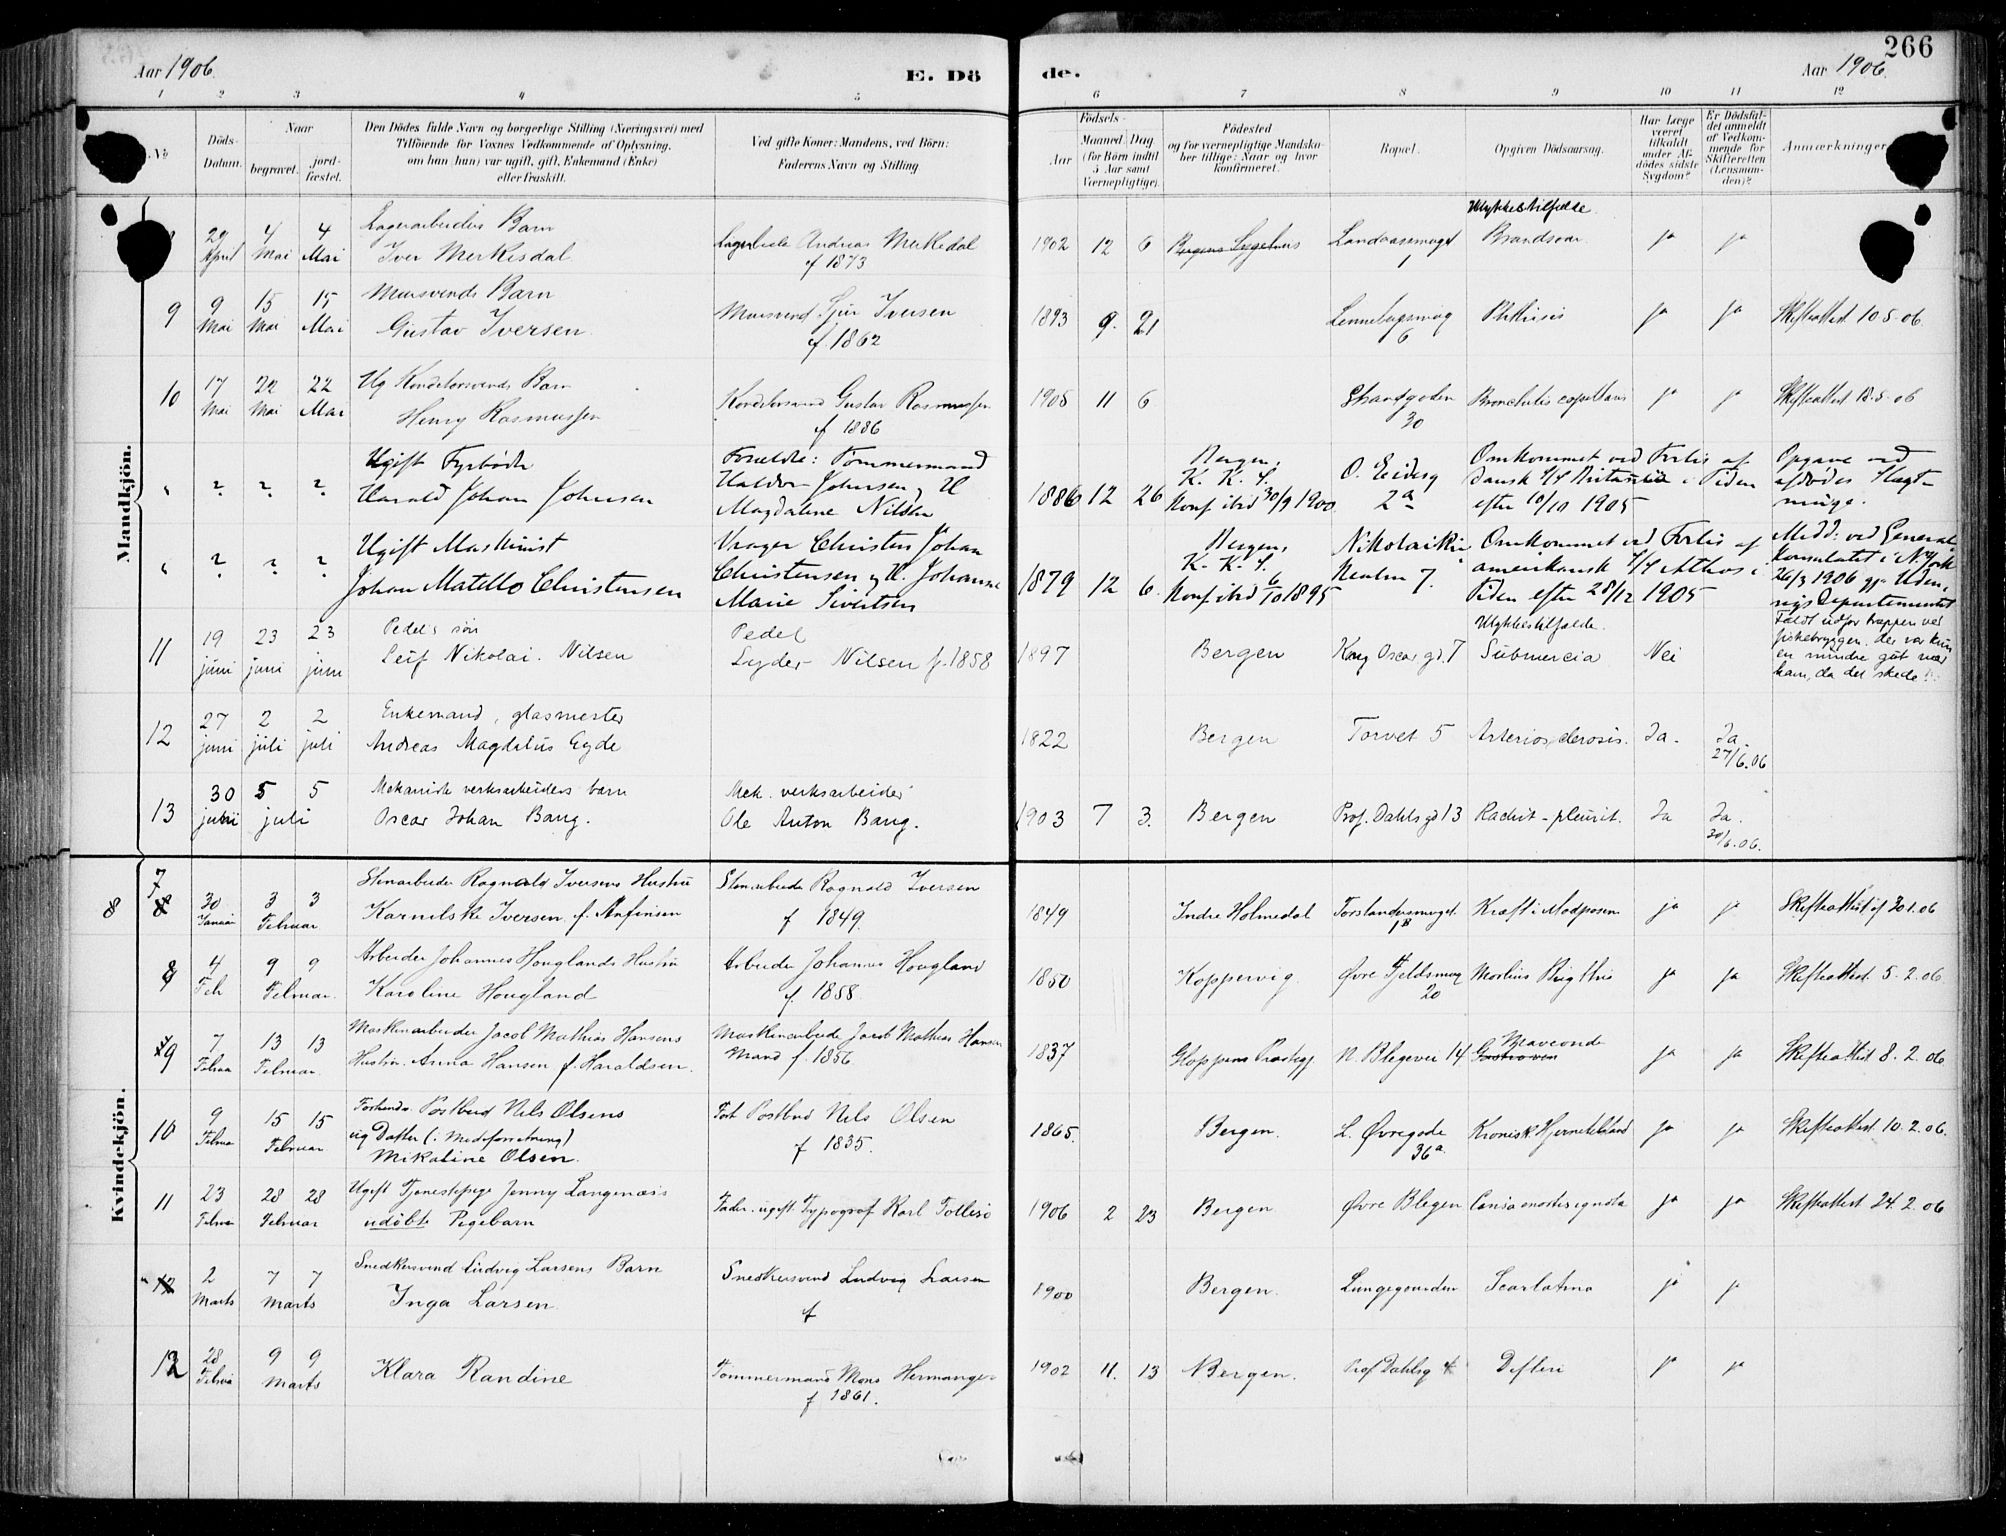 266
Aar 1906.
E. Dö
de.
Aar 1906.
1 2 3 4 5 6 7 8 9 10 11 12
No
Döds-Datum.
Naar
begravet.
jord-fæstet.
Den Dödes fulde Navn og borgerlige Stilling (Næringsvei) med
Tilföiende for Voxnes Vedkommende af Oplysning,
om han (hun) var ugift, gift, Enkemand (Enke)
eller fraskilt.
Ved gifte Koner: Mandens, ved Börn:
Faderens Navn og Stilling
Födsels-
Aar
Maaned Dag
(for Börn indtil
5 Aar samt
Værnepligtige).
Födested
og for værnepligtige Mandskaber tillige: Naar og hvor
konfirmeret.
Bopæl.
Opgiven Dödsaarsag.
Har Læge
været
tilkaldt
under Afdödes sidste
Sygdom?
Er Dödsfaldet anmeldt
af Vedkommende for
Skifteretten
(Lensmanden)?
Anmærkninger
Mandkjön.
29 April 4 Mai 4 Mai
Lagerarbeiders Barn
Iver Merkesdal
Andreas Merkesdal
f 1873
1902 12 6
Bergens Sygehus
Landaassmuget
1
Ulykkestilfælde.
Brandsaar.
ja ja
9
9 Mai 15 Mai 15 Mai
Mursvends Barn
Gustav Iversen
Mursvend Sjur Iversen
f. 1862
1893 9. 21
6
Phthisis
ja ja
Skifteattest 10.5.06
10
17 Mai 22 Mai 22 Mai
Ug Konditorsvends Barn
Henry Rasmussen
Konditorsvend Gustav Rasmussen
f 1886
1905 11 6
Strandgaden
30
Bronchitis capillaris
ja ja
Skifteattest 18.5.06
" ? ? ?
Ugift Fyrbøder
Harald Johan Johnsen
Forældre: Tømmermand
Haldor Johnsen, H
Magdalene Nilsen
1886 12 26
Bergen,
K. K. S.
Konf ibid 30/9 1900
O. Eidesg
2a
Omkommet ved Forlis af
dansk S/S Britannia i Tiden
efter 10/10 1905
Opgave ved
afdødes Slægtninge.
" ? ? ?
Ugift Maskinist
Johan Matello Christensen
Vrager Christen Johan
Christensen og H. Johanne
Marie Sivertsen
1879 12 6.
Bergen,
K. K. S.
Konf ibid 6/10 1895
Nikolaikir
7.
Omkommet ved Forlis af
amerikansk S/S Athos i
Tiden efter 28/12 1905
Medd: ved General
Konsulatet i N. York
26/3 1906 gj. Udenrigs Departementet
11
19 juni 23 juni 23 juni
Pedels søn
Leif Nikolai. Nilsen
Pedel
Lyder Nilsen f. 1858
1897
Bergen
Kong Oscar gd. 7
Ulykkestilfælde.
Submercia
Nei
Faldt udfor trappen ved
fiskebryggen. der var kun
en mindre gut nær
ham, da det skede.
12
27 juni 2 juli 2 juli
Enkemand, glasmester
Andreas Magdalus Gyde
1822
Bergen
Torvet 5
Arteriosclerosis.
Ja.
Ja.
27/6.06
13
30 juni 5 5 juli
Mekanisk verksarbeiders barn
Oscar Johan Bang.
Mek. verksarbeider
Ole Anton Bang.
1903 7 3.
Bergen
Prof. Dahls gd 13
Rachit - pleurit.
Ja
Ja.
30/6.06.
Kvindekjön.
8 7
30 Januar 3 3 Februar
Stenarbeider Ragnald Iversens Hustru
Karnilske Iversen f. Anfinsen
Stenarbeider Ragnald Iversen
f 1849.
1849
Indre Holmedal
Forstandersmuget.
Kræft i
ja ja
Skifteattest af 30.1.06
8
4 Feb 9 9 Februar.
Arbeider Johannes Houglands Hustru
Karoline Hougland
Arbeider Johannes Hougland
f. 1858.
1850
Koppervig
Øvre Fjeldsmug
20
Morbus Brigthii
ja ja
Skifteattest 5.2.06
9
7 Februar 13 13 Februar.
Maskinarbeider Jacob Mathias Hansens
Hustru Anna Hansen f. Haraldsen.
Maskinarbeider Jacob Mathias Hansen
Mand f. 1856
1837
Gloppens Præstegj.
N. Blegevei 14.
Maveonde
ja ja
Skifteattest 8.2.06
10
9 Februar 15 15 Februar
Forhenv. Postbud Nils Olsens
ug Datter (i Madforretning)
Mikaline Olsen.
Fat Postbud Nils Olsen
f 1835.
1865.
Bergen.
L. Øvregade
36a.
Kronisk Hjerne
ja ja
Skifteattest. 10.2.06.
11
23 Februar 28 28 Februar
Ugift Tjenestepige Jenny Langenæss
udøbte Pigebarn
Fader: ugift Typograf Karl
1906 2 23
Bergen
Øvre Blegen
Causa mortis ignota
ja ja
Skifteattest 24.2.06
" 12
2 Marts 7 7 Marts
Snedkersvend Ludvig Larsens Barn
Inga Larsen
Snedkersvend Ludvig Larsen
f
1900
Bergen.
Lungegaarden
Scarlatina
ja ja
12
28 Februar 9 9 Marts
Klara Randine
Tømmermand Mons Hermansen
f 1861.
1902 11. 13
Bergen.
Prof Dahlsg 4
Difteri
ja ja